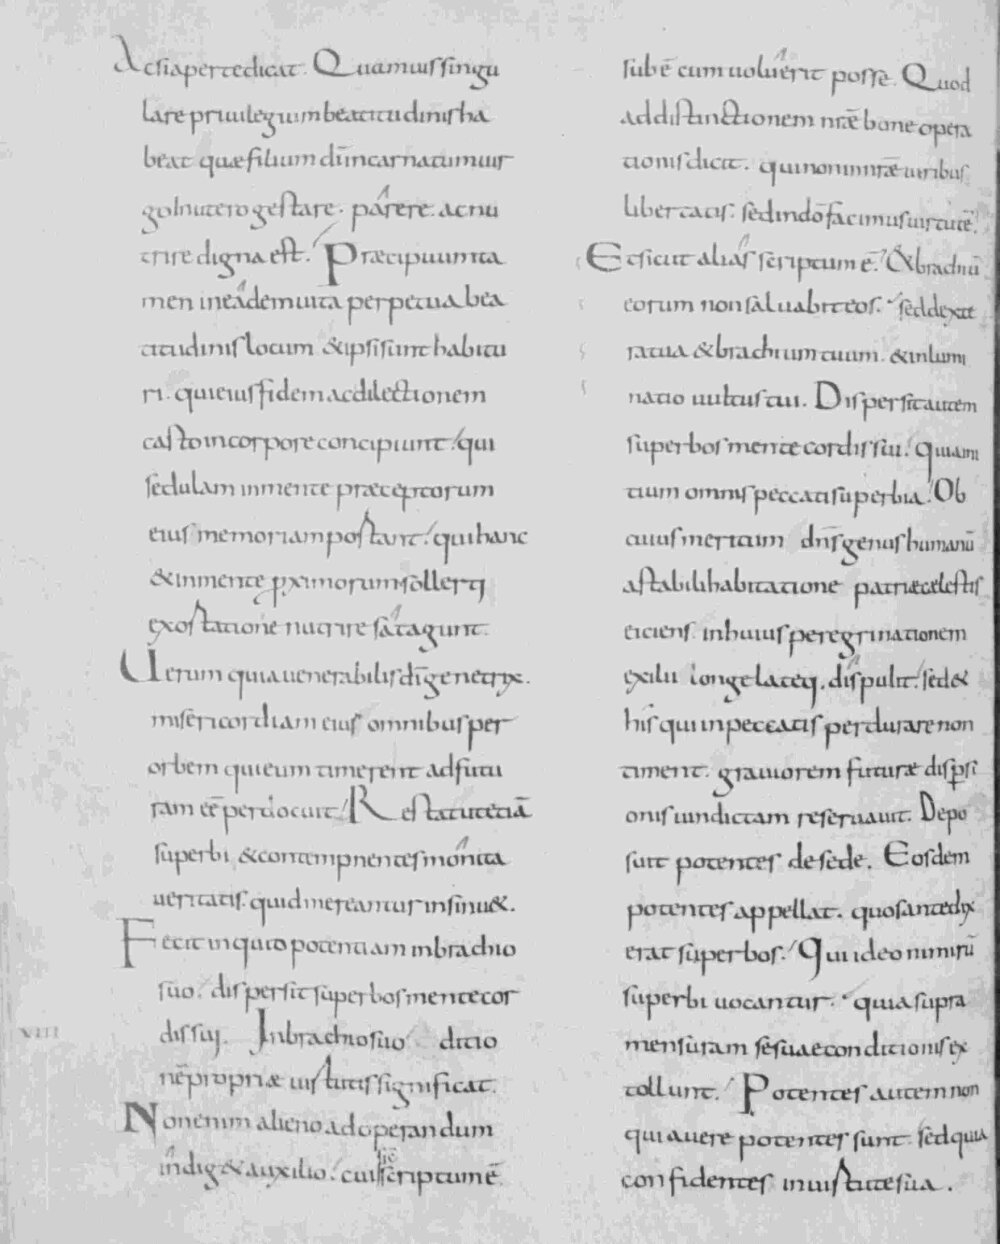 Acsi aperte dicat. Quamuis singu
lare priuilegium beatitudinis ha
beat quae filium dī incarnatum uir
go in utero gestare. parere. ac nu
trire digna est. Praecipuum ta
men in ea demuita perpetua bea
titudinis locum & ipsi sunt habitu
ri. qui eius fidem ac dilectionem
casto in corpore concipiunt. qui
sedulam in mente praeceptorum
eius memoriam portant. qui hanc
& in mente proximorum sollerti
exortatione nutrire satagunt.
Uerum quia uenerabilis dī genetrix.
misericordiam eius omnibus per
orbem qui eum timerent adfutu
ram eē perdocuit. Restat ut etiā
superbi & contempnentes monita
ueritatis. quid mereantur insinu&.
Fecit inquit potentiam in brachio
suo. dispersit superbos mente cor
dis sui. In brachio suo ditio
nē propriae uirtutis significat.
Non enim alieno ad operandum
indig& auxilio. cui sic scriptum ē
sub ē cum uoluerit posse. Quod
ad distinctionem nrāe bone opera
tionis dicit. qui non in nrāe uiribus
libertatis. sed in dō facimus uirtutē.
Et sicut alias scriptum ē. & brachiū
eorum non saluabit eos. sed dexte
ra tua & brachium tuum. & inlumi
natio uultus tui. Dispersit autem
superbos mente cordis sui. quia ini
tium omnis peccati superbia. Ob
cuius meritum dn̄s genus humanū
a stabili habitatione patriae caelestis
eiciens. in huius peregrinationem
exilii longe lateq. dispulit. sed &
his qui in peccatis perdurare non
timent. grauiorem futurae dispersi
onis uindictam reseruauit. Depo
suit potentes de sede. Eosdem
potentes appellat. quos ante dix
erat superbos. Qui ideo nimirū
superbi uocantur. quia supra
mensuram se suae conditionis ex
tollunt. Potentes autem non
qui a uere potenter sunt. sed quia
confidentes in uirtute sua.
VIII